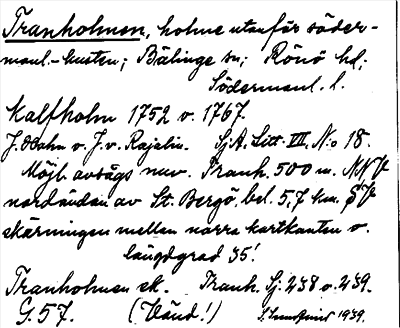 Tranholmen, holme utanför söder-
manl.-kusten; Bälinge sn; Rönö hd;
Södermanl. l.
Kalfholm 1752 o. 1767.
J. Hahn o. J. v. Rajalin. SjA. Litt. VII, N:o 18.
Möjl. avsågs nuv. Tranh. 500 m. NNV
nordändan av St. Bergö, bel. 5,7 km. SV
skärningen mellan norra kartkanten o.
längdgrad 35'.
Tranholmen ek. Tranh. Sj. 238 o. 239.
G. 57. (Vänd!) 1939.